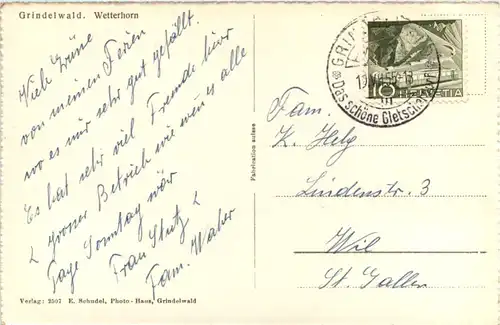 Grindelwald. Wetterhorn
Viele Grüsse
von meinen Ferien
wo es mir sehr gut gefällt.
Es hat sehr viel Fremde hier
& grosser Betrieb wie wen es alle
Tage Sonntag wär
Frau Stutz &
Fam. Walser
Verlag: 2507 E. Schudel, Photo-Haus, Grindelwald
Fabrication suisse
GRINDELWALD
Das schöne Gletscher
10 HELVETIA
Fam.
K. Helg
Lindenstr. 3
Wil
St. Gallen